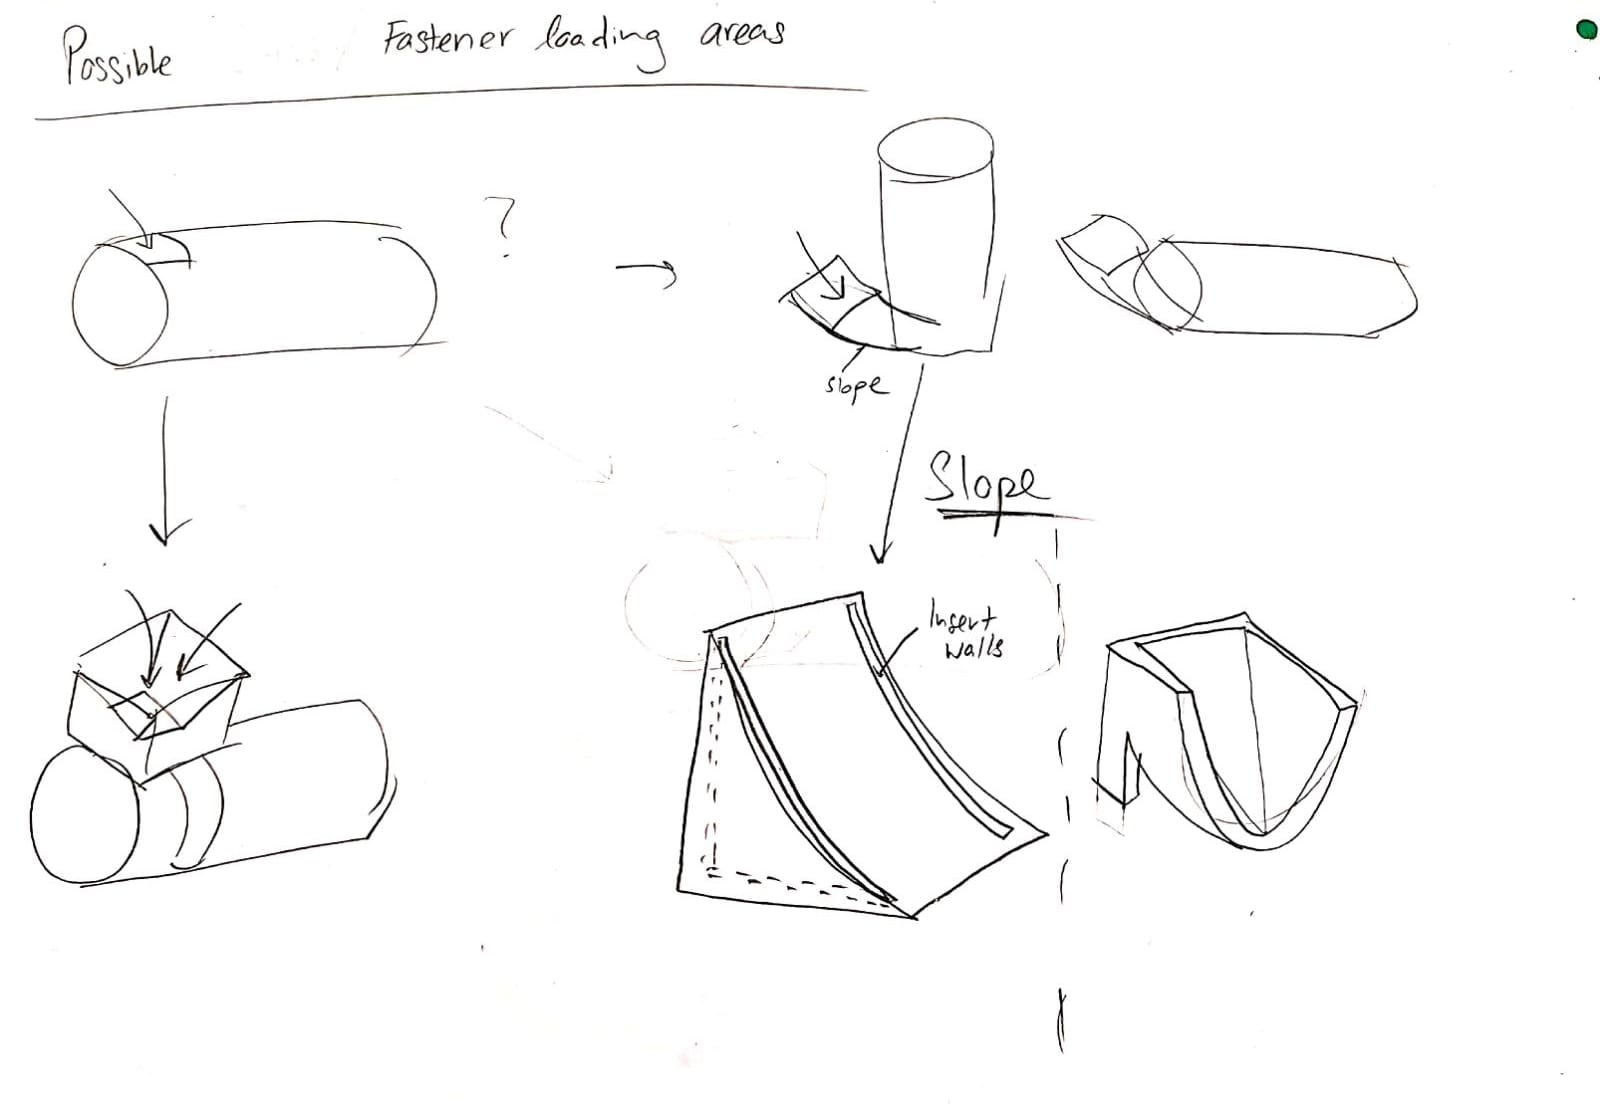 Possible Fastener loading areas
?
slope
Slope
Insert
walls